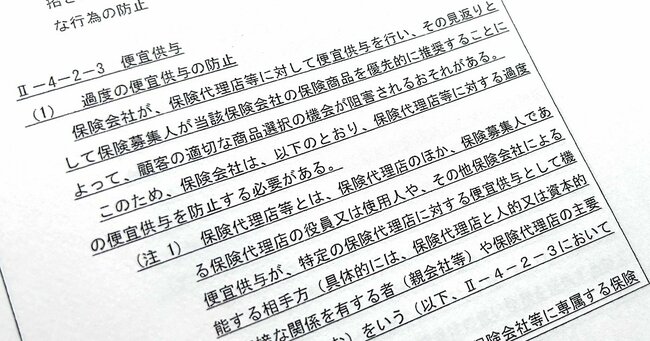 な行為の防止
Ⅱ－４－２－３　便宜供与
（１）　過度の便宜供与の防止
保険会社が、保険代理店等に対して便宜供与を行い、その見返りと
して保険募集人が当該保険会社の保険商品を優先的に推奨することに
よって、顧客の適切な商品選択の機会が阻害されるおそれがある。
このため、保険会社は、以下のとおり、保険代理店等に対する過度
の便宜供与を防止する必要がある。
（注１）　保険代理店等とは、保険代理店のほか、保険募集人であ
る保険代理店の役員又は使用人や、その他保険会社による
便宜供与が、特定の保険代理店に対する便宜供与として機
能する相手方（具体的には、保険代理店と人的又は資本的
接な関係を有する者（親会社等）や保険代理店の主要
をいう（以下、Ⅱ－４－２－３において
保険会社等に専属する保険